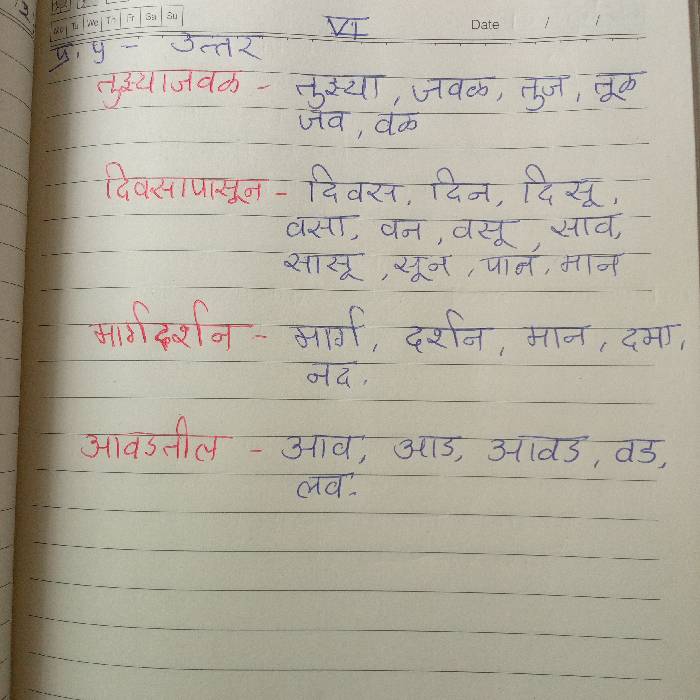 Mo Tu We Th Fr Sa Su
VI
Date / /
प्र. ५ - उत्तर
तुझ्याजवळ - तुझ्या, जवळ, तुज, तूळ
जव, वळ
दिवसापासून - दिवस, दिन, दिसू,
वसा, वन, वसू, साव,
सासू, सून, पान, मान
मार्गदर्शन - मार्ग, दर्शन, मान, दमा,
नद.
आवडतील - आव, आड, आवड, वड,
लव.